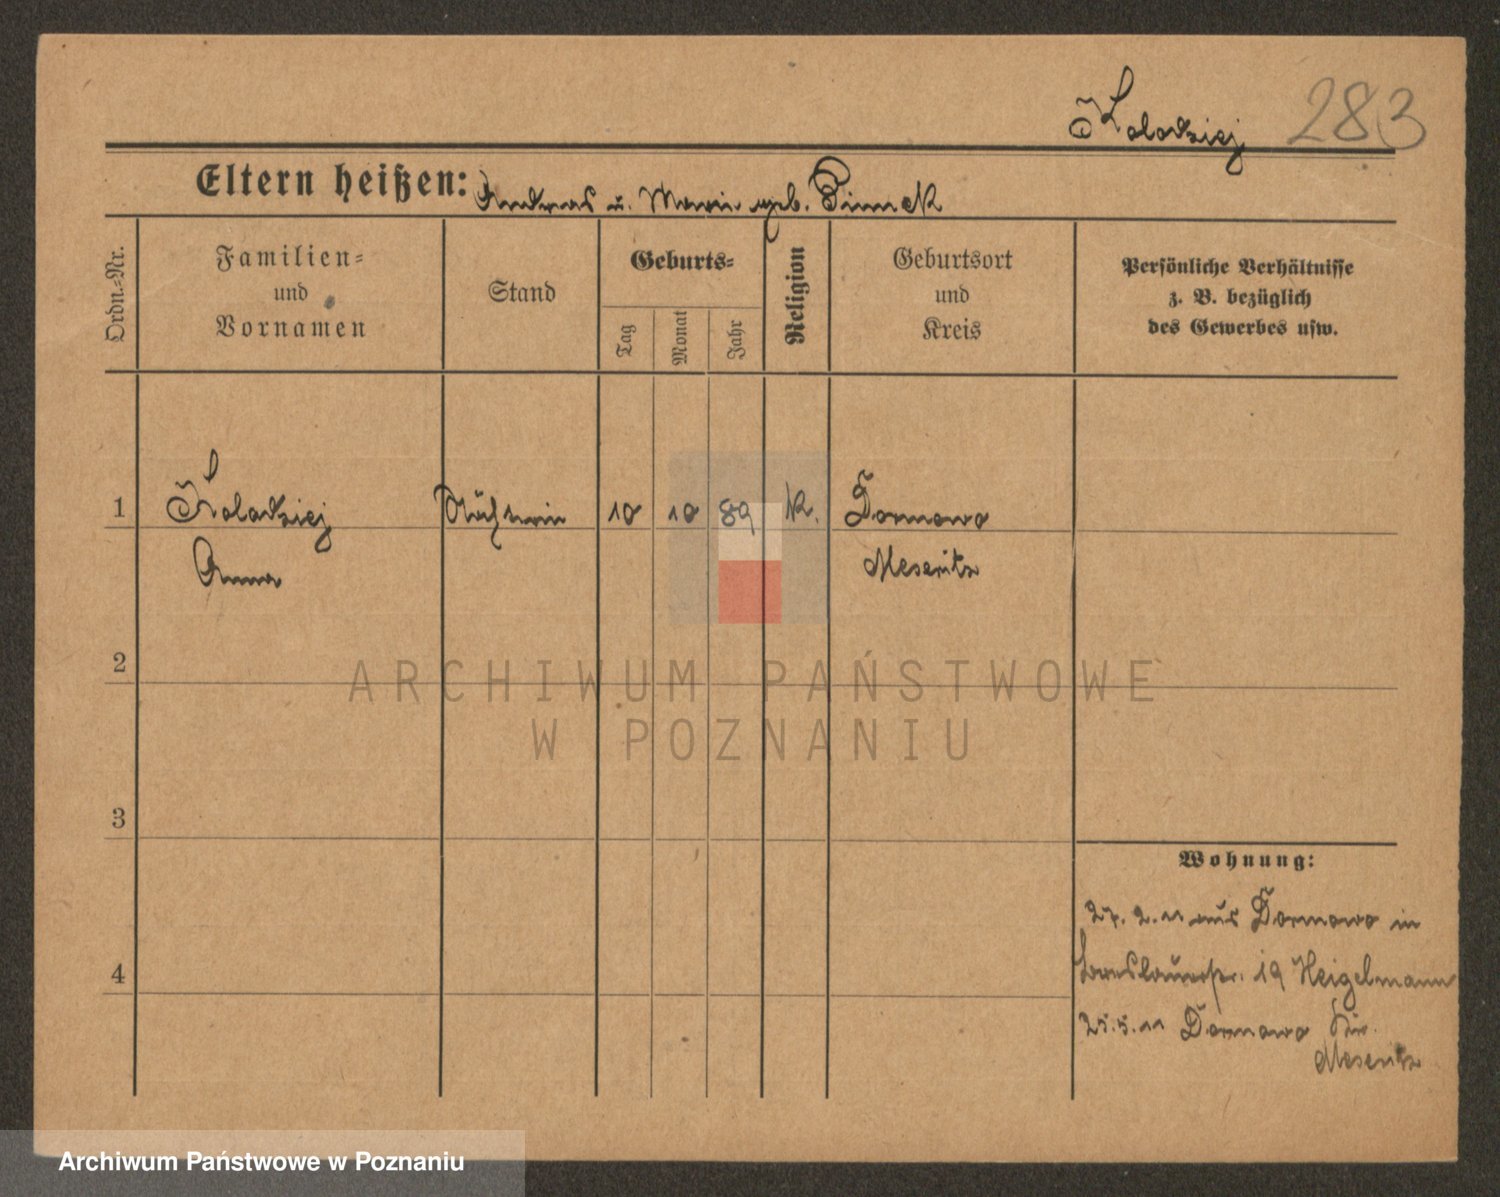 Kolodziej 283
Eltern heißen: Andreas u. Marie geb. Pinnek
Ordn.-Nr.
Familien-
und
Vornamen
Stand
Geburts-
Tag
Monat
Jahr
Religion
Geburtsort
und
Kreis
Persönliche Verhältnisse
z. B. bezüglich
des Gewerbes usw.
1 Kolodziej 10 10 89 K. Dormowo
Anna Meseritz
2
ARCHIWUM PAŃSTWOWE
W POZNANIU
3
Wohnung:
27. 2. 11 aus Dormowo in
Breslauerstr. 19 Heigelmann
4
25. 5. 11 Dormowo Kr.
Meseritz
Archiwum Państwowe w Poznaniu